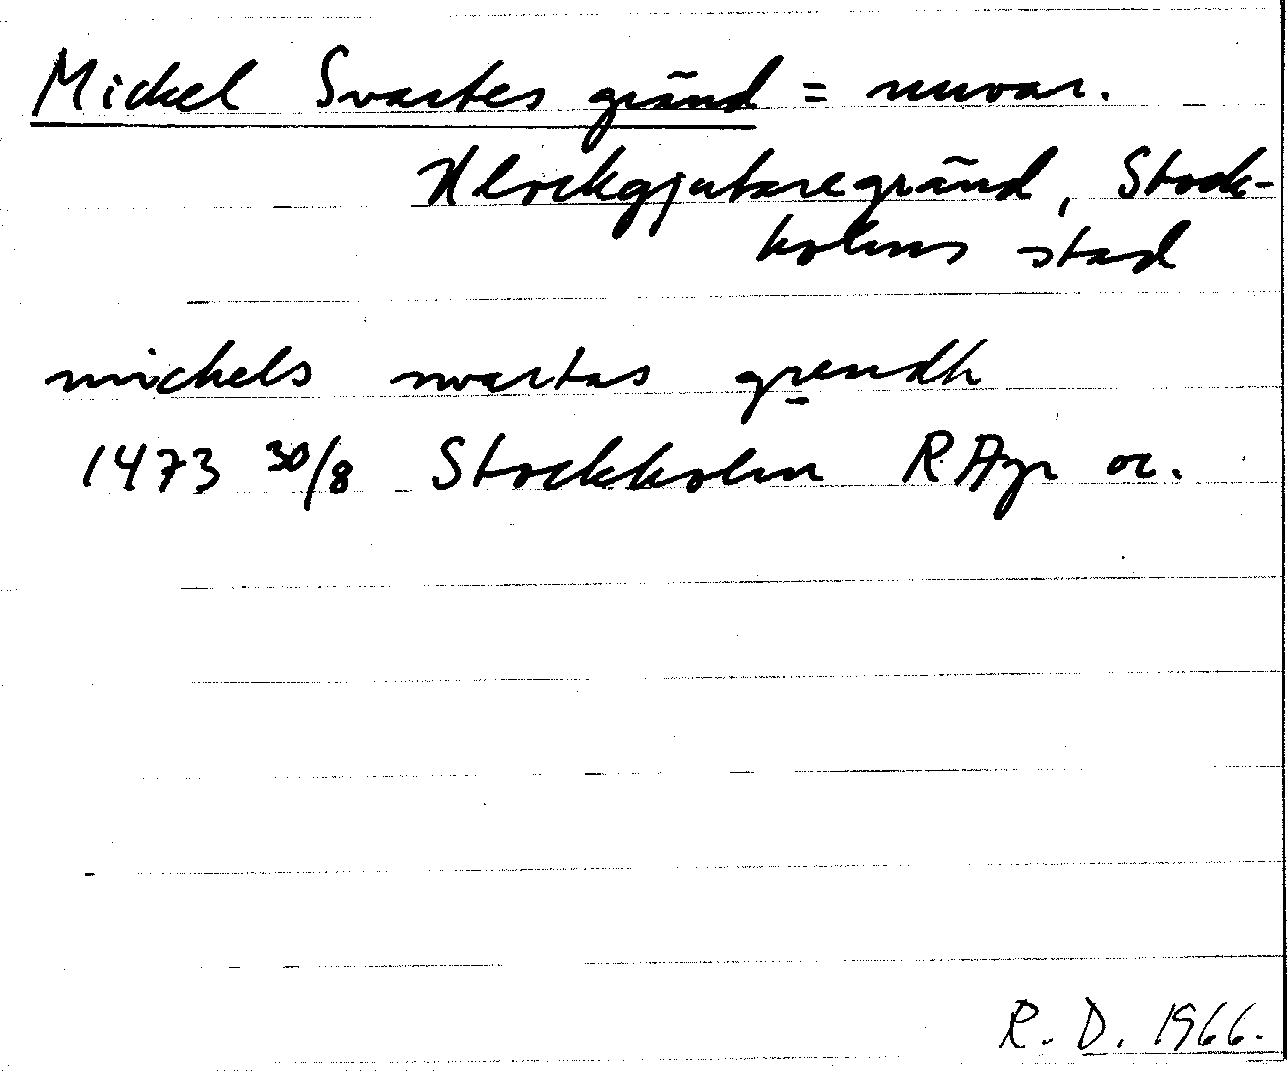 Mickel Svartes gränd = nuvar.
Klockgjutaregränd, Stock-
holms stad
michels swartas grendh
1473 30/8 Stockholm RApr or.
R. D. 1966.